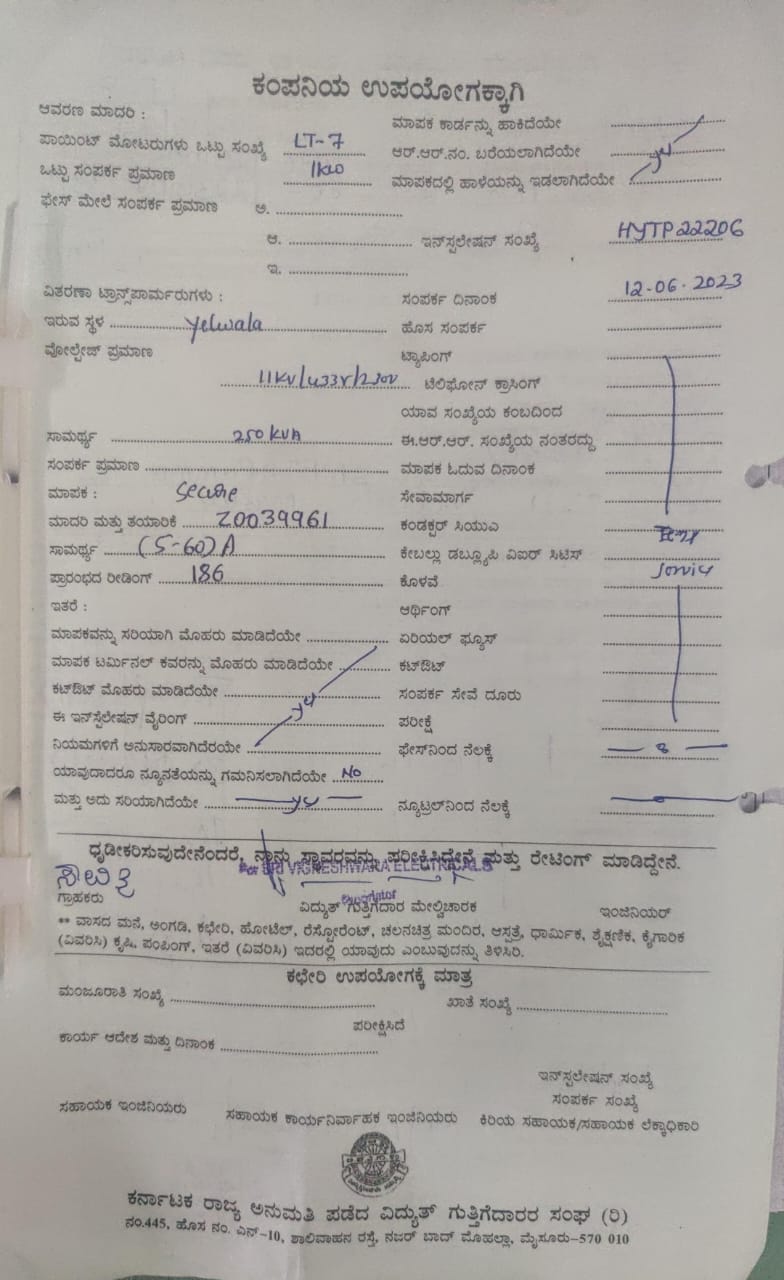 ಕಂಪನಿಯ ಉಪಯೋಗಕ್ಕಾಗಿ
ಆವರಣ ಮಾದರಿ :
ಮಾಪಕ ಕಾರ್ಡನ್ನು ಹಾಕಿದೆಯೇ
ಪಾಯಿಂಟ್ ಮೋಟರುಗಳು ಒಟ್ಟು ಸಂಖ್ಯೆ LT-7 ಆರ್.ಆರ್.ನಂ. ಬರೆಯಲಾಗಿದೆಯೇ
ಒಟ್ಟು ಸಂಪರ್ಕ ಪ್ರಮಾಣ 1kw ಮಾಪಕದಲ್ಲಿ ಹಾಳೆಯನ್ನು ಇಡಲಾಗಿದೆಯೇ
ಫೇಸ್ ಮೇಲೆ ಸಂಪರ್ಕ ಪ್ರಮಾಣ ಅ.
ಆ. ಇನ್‌ಸ್ಟಲೇಷನ್ ಸಂಖ್ಯೆ HYTP22206
ಇ.
ವಿತರಣಾ ಟ್ರಾನ್ಸ್‌ಪಾರ್ಮರುಗಳು : ಸಂಪರ್ಕ ದಿನಾಂಕ 12-06-2023
ಇರುವ ಸ್ಥಳ Yelwala ಹೊಸ ಸಂಪರ್ಕ
ವೋಲ್ಟೇಜ್ ಪ್ರಮಾಣ ಟ್ಯಾಪಿಂಗ್
11KV/433V/230V ಟೆಲಿಫೋನ್ ಕ್ರಾಸಿಂಗ್
ಯಾವ ಸಂಖ್ಯೆಯ ಕಂಬದಿಂದ
ಸಾಮರ್ಥ್ಯ 250 KVA ಈ.ಆರ್.ಆರ್. ಸಂಖ್ಯೆಯ ನಂತರದ್ದು
ಸಂಪರ್ಕ ಪ್ರಮಾಣ ಮಾಪಕ ಓದುವ ದಿನಾಂಕ
ಮಾಪಕ : Secure ಸೇವಾಮಾರ್ಗ
ಮಾದರಿ ಮತ್ತು ತಯಾರಿಕೆ Z0039961 ಕಂಡಕ್ಟರ್ ಸಿಯುವಿ
ಸಾಮರ್ಥ್ಯ (5-60)A ಕೇಬಲ್ಲು ಡಬ್ಲ್ಯೂಪಿ ವಿಐರ್ ಸಿಟಿಸ್
ಪ್ರಾರಂಭದ ರೀಡಿಂಗ್ 186 ಕೊಳವೆ
ಇತರೆ : ಆರ್ಥಿಂಗ್
ಮಾಪಕವನ್ನು ಸರಿಯಾಗಿ ಮೊಹರು ಮಾಡಿದೆಯೇ ಏರಿಯಲ್ ಫ್ಯೂಸ್
ಮಾಪಕ ಟರ್ಮಿನಲ್ ಕವರನ್ನು ಮೊಹರು ಮಾಡಿದೆಯೇ ಕಟ್‌ಔಟ್
ಕಟ್‌ಔಟ್ ಮೊಹರು ಮಾಡಿದೆಯೇ ಸಂಪರ್ಕ ಸೇವೆ ದೂರು
ಈ ಇನ್‌ಸ್ಟೆಲೇಷನ್ ವೈರಿಂಗ್ ಪರೀಕ್ಷೆ
ನಿಯಮಗಳಿಗೆ ಅನುಸಾರವಾಗಿದೆರಯೇ ಫೇಸ್‌ನಿಂದ ನೆಲಕ್ಕೆ
ಯಾವುದಾದರೂ ನ್ಯೂನತೆಯನ್ನು ಗಮನಿಸಲಾಗಿದೆಯೇ No
ಮತ್ತು ಅದು ಸರಿಯಾಗಿದೆಯೇ ನ್ಯೂಟ್ರಲ್‌ನಿಂದ ನೆಲಕ್ಕೆ
ಧೃಡೀಕರಿಸುವುದೇನೆಂದರೆ, ನಾನು ಸ್ಥಾವರವನ್ನು ಪರೀಕ್ಷಿಸಿದ್ದೇನೆ ಮತ್ತು ರೇಟಿಂಗ್ ಮಾಡಿದ್ದೇನೆ.
VIGNESHWARA ELECTRICALS
ಗ್ರಾಹಕರು ವಿದ್ಯುತ್ ಗುತ್ತಿಗೆದಾರ ಮೇಲ್ವಿಚಾರಕ ಇಂಜಿನಿಯರ್
** ವಾಸದ ಮನೆ, ಅಂಗಡಿ, ಕಛೇರಿ, ಹೋಟೆಲ್, ರೆಸ್ಟೋರೆಂಟ್, ಚಲನಚಿತ್ರ ಮಂದಿರ, ಆಸ್ಪತ್ರೆ, ಧಾರ್ಮಿಕ, ಶೈಕ್ಷಣಿಕ, ಕೈಗಾರಿಕೆ
(ವಿವರಿಸಿ) ಕೃಷಿ, ಪಂಪಿಂಗ್, ಇತರೆ (ವಿವರಿಸಿ) ಇದರಲ್ಲಿ ಯಾವುದು ಎಂಬುವುದನ್ನು ತಿಳಿಸಿರಿ.
ಕಛೇರಿ ಉಪಯೋಗಕ್ಕೆ ಮಾತ್ರ
ಮಂಜೂರಾತಿ ಸಂಖ್ಯೆ ಖಾತೆ ಸಂಖ್ಯೆ
ಪರೀಕ್ಷಿಸಿದೆ
ಕಾರ್ಯ ಆದೇಶ ಮತ್ತು ದಿನಾಂಕ
ಇನ್‌ಸ್ಟಲೇಷನ್ ಸಂಖ್ಯೆ
ಸಂಪರ್ಕ ಸಂಖ್ಯೆ
ಸಹಾಯಕ ಇಂಜಿನಿಯರು ಸಹಾಯಕ ಕಾರ್ಯನಿರ್ವಾಹಕ ಇಂಜಿನಿಯರು ಕಿರಿಯ ಸಹಾಯಕ/ಸಹಾಯಕ ಲೆಕ್ಕಾಧಿಕಾರಿ
ಕರ್ನಾಟಕ ರಾಜ್ಯ ಅನುಮತಿ ಪಡೆದ ವಿದ್ಯುತ್ ಗುತ್ತಿಗೆದಾರರ ಸಂಘ (ರಿ)
ನಂ.445, ಹೊಸ ನಂ. ಎನ್-10, ಶಾಲಿವಾಹನ ರಸ್ತೆ, ನಜರ್ ಬಾದ್ ಮೊಹಲ್ಲಾ, ಮೈಸೂರು-570 010